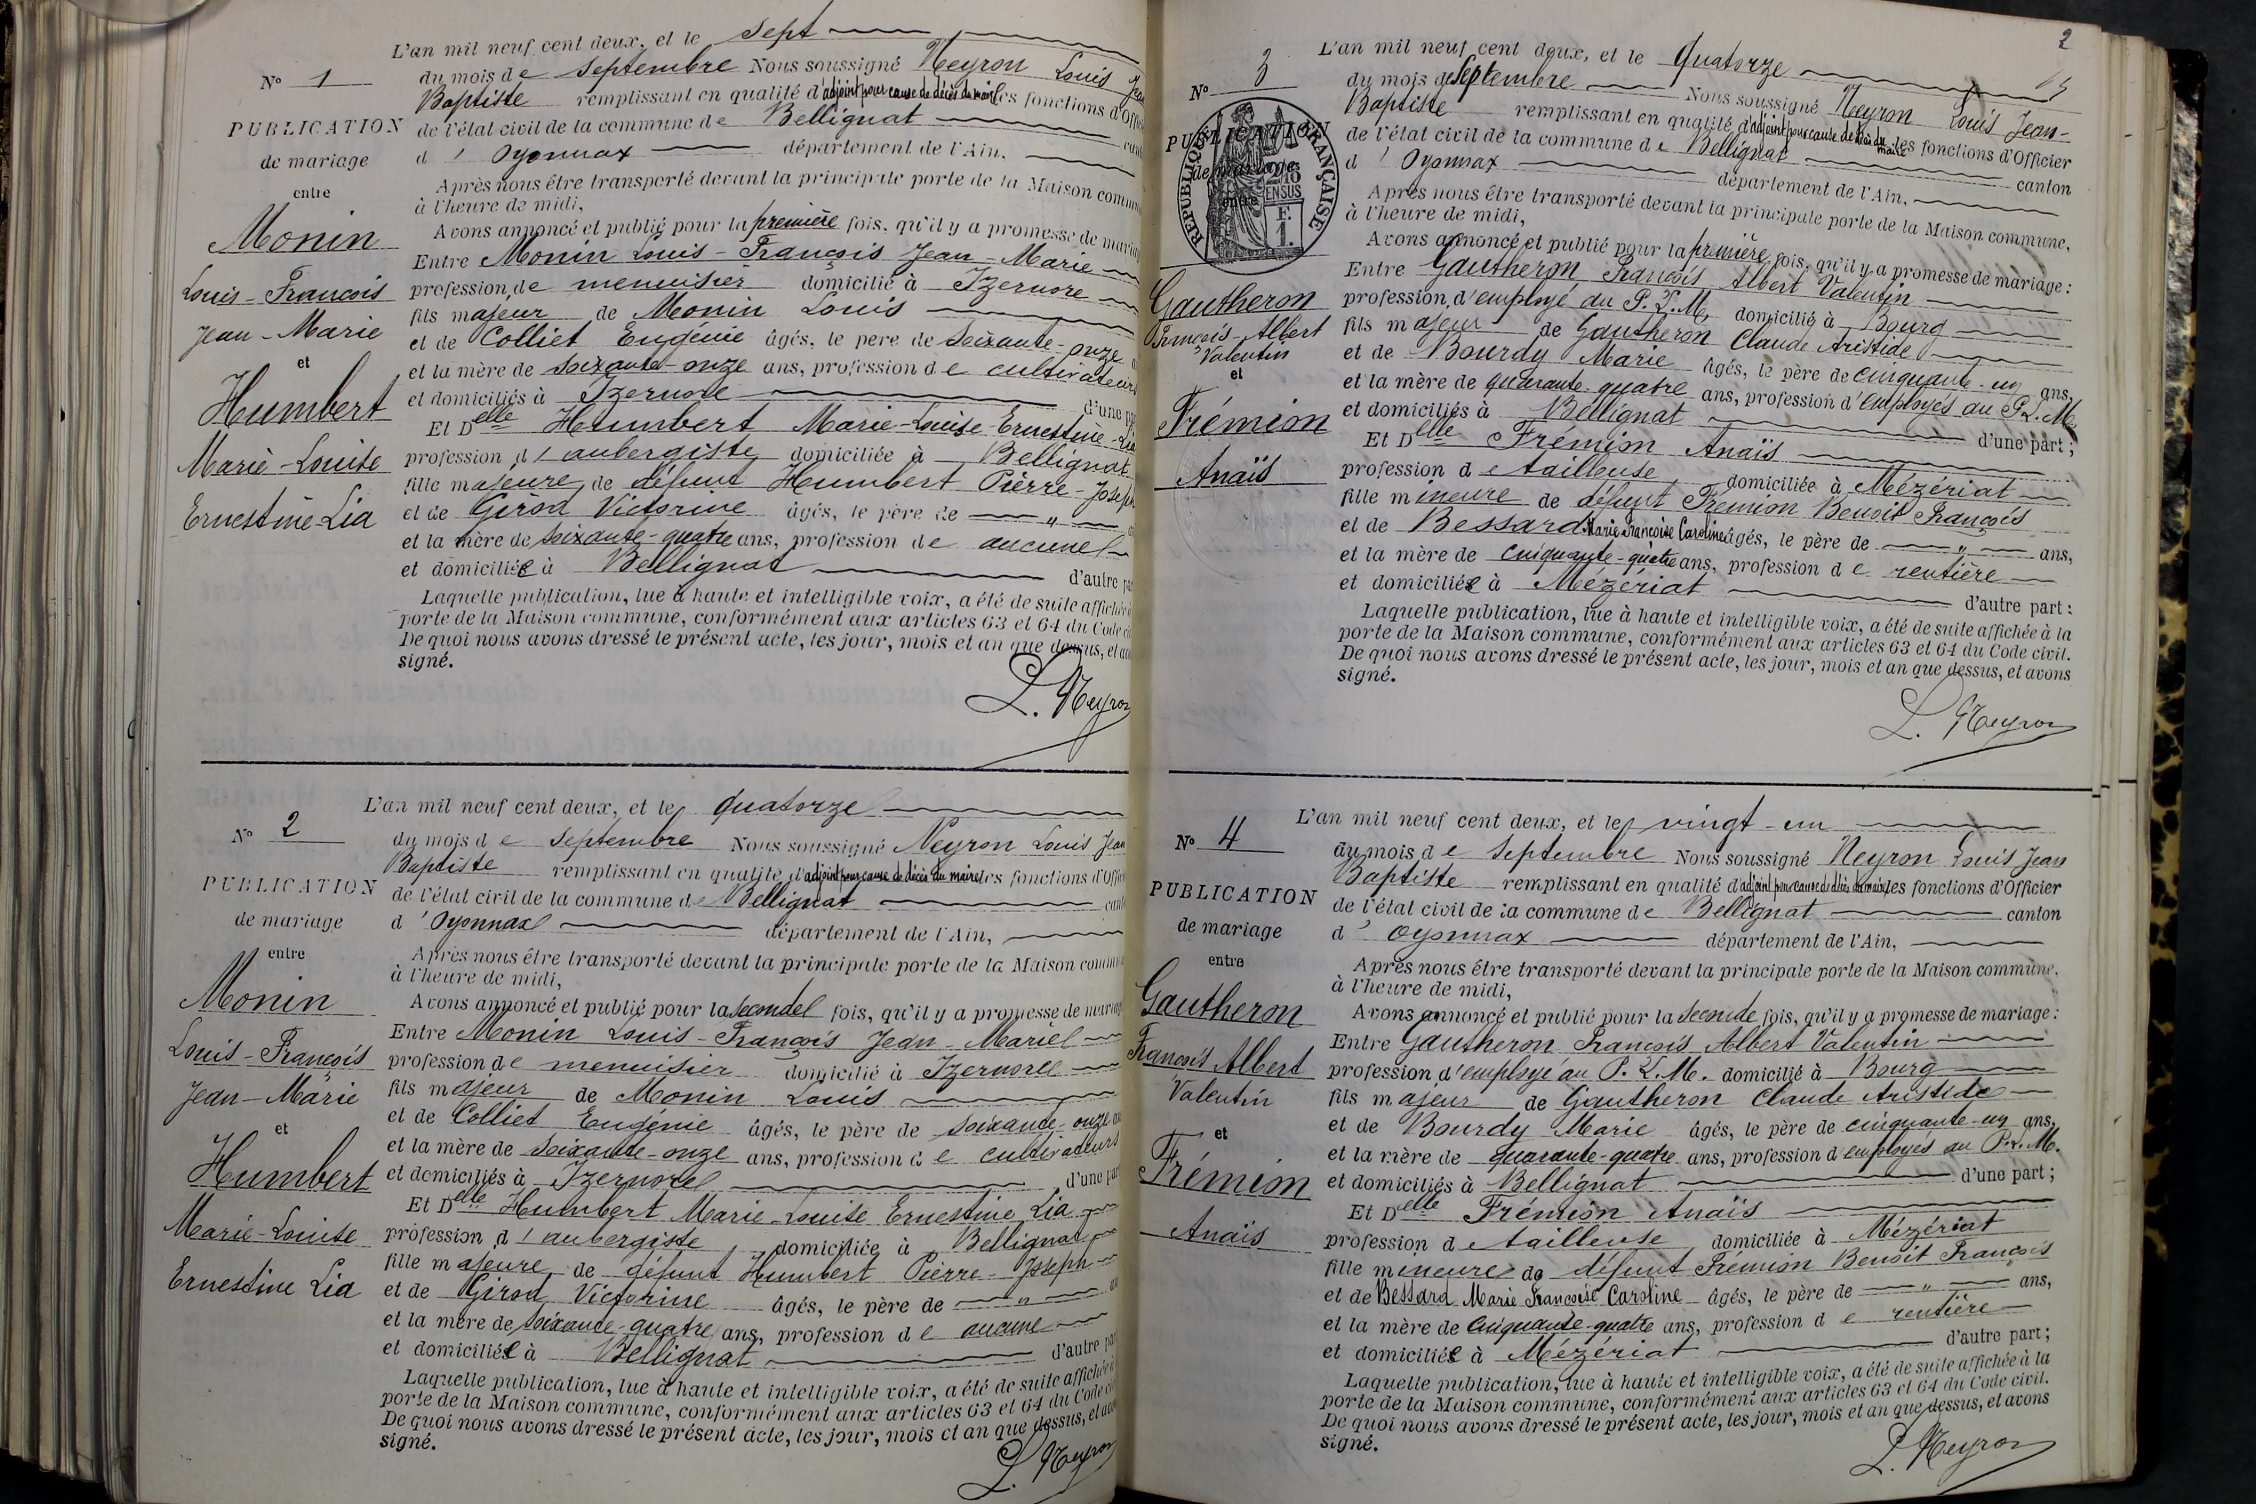 L'an mil neuf cent deux, et le sept
N° 1
du mois de septembre Nous soussigné Neyron Louis Jean
Baptiste remplissant en qualité d'adjoint pour cause de décès du maire les fonctions d'Offi
PUBLICATION
de l'état civil de la commune de Bellignat cant
de mariage
d'Oyonnax département de l'Ain.
entre
Après nous être transporté devant la principale porte de la Maison commu
à l'heure de midi,
Avons annoncé et publié pour la première fois, qu'il y a promesse de maria
Monin
Louis-François
Jean-Marie
et
Humbert
Marie-Louise
Ernestine-Lia
Entre Monin Louis-François Jean-Marie
profession de menuisier domicilié à Izernore
fils majeur de Monin Louis
et de Colliet Eugénie âgés, le père de soixante-onze
et la mère de soixante-onze ans, profession de cultivateurs
et domiciliés à Izernore d'une pa
Et Delle Humbert Marie-Louise-Ernestine-Lia
profession d'aubergiste domiciliée à Bellignat
fille majeure de défunt Humbert Pierre-Joseph
et de Girod Victorine âgés, le père de — " —
et la mère de soixante-quatre ans, profession de aucune
et domiciliée à Bellignat d'autre pa
Laquelle publication, lue à haute et intelligible voix, a été de suite affichée à
porte de la Maison commune, conformément aux articles 63 et 64 du Code ci
De quoi nous avons dressé le présent acte, les jour, mois et an que dessus, et avo
signé.
L. Neyron
L'an mil neuf cent deux, et le quatorze
N° 2
du mois de septembre Nous soussigné Neyron Louis Jean
Baptiste remplissant en qualité d'adjoint pour cause de décès du maire les fonctions d'Offic
PUBLICATION
de l'état civil de la commune de Bellignat cant
de mariage
d'Oyonnax département de l'Ain,
entre
Après nous être transporté devant la principale porte de la Maison commu
à l'heure de midi,
Avons annoncé et publié pour la seconde fois, qu'il y a promesse de mariag
Monin
Louis-François
Jean-Marie
et
Humbert
Marie-Louise
Ernestine Lia
Entre Monin Louis-François Jean-Marie
profession de menuisier domicilié à Izernore
fils majeur de Monin Louis
et de Colliet Eugénie âgés, le père de soixante-onze an
et la mère de soixante-onze ans, profession de cultivateurs
et domiciliés à Izernore d'une par
Et Delle Humbert Marie-Louise Ernestine Lia
profession d'aubergiste domiciliée à Bellignat
fille majeure de défunt Humbert Pierre-Joseph
et de Girod Victorine âgés, le père de — " — an
et la mère de soixante-quatre ans, profession de aucune
et domiciliée à Bellignat d'autre par
Laquelle publication, lue à haute et intelligible voix, a été de suite affichée à
porte de la Maison commune, conformément aux articles 63 et 64 du Code ci
De quoi nous avons dressé le présent acte, les jour, mois et an que dessus, et avo
signé.
L. Neyron
2
L'an mil neuf cent deux, et le quatorze
N° 3
du mois de septembre Nous soussigné Neyron Louis Jean-
Baptiste remplissant en qualité d'adjoint pour cause de décès du maire les fonctions d'Officier
PUBLICATION
de l'état civil de la commune de Bellignat canton
de mariage
d'Oyonnax département de l'Ain,
entre
RÉPUBLIQUE FRANÇAISE
2/10 EN SUS
F.
1.
Après nous être transporté devant la principale porte de la Maison commune,
à l'heure de midi,
Avons annoncé et publié pour la première fois, qu'il y a promesse de mariage :
Gautheron
François-Albert
Valentin
et
Frémion
Anaïs
Entre Gautheron François Albert Valentin
profession d'employé au P.L.M. domicilié à Bourg
fils majeur de Gautheron Claude Aristide
et de Bourdy Marie âgés, le père de cinquante-un ans,
et la mère de quarante-quatre ans, profession d'employés au P.L.M.
et domiciliés à Bellignat d'une part ;
Et Delle Frémion Anaïs
profession de tailleuse domiciliée à Mézériat
fille mineure de défunt Frémion Benoit François
et de Bessard Marie Françoise Caroline âgés, le père de — " — ans,
et la mère de cinquante-quatre ans, profession de rentière
et domiciliée à Mézériat d'autre part :
Laquelle publication, lue à haute et intelligible voix, a été de suite affichée à la
porte de la Maison commune, conformément aux articles 63 et 64 du Code civil.
De quoi nous avons dressé le présent acte, les jour, mois et an que dessus, et avons
signé.
L. Neyron
L'an mil neuf cent deux, et le vingt-un
N° 4
du mois de septembre Nous soussigné Neyron Louis Jean
Baptiste remplissant en qualité d'adjoint pour cause de décès du maire les fonctions d'Officier
PUBLICATION
de l'état civil de la commune de Bellignat canton
de mariage
d'Oyonnax département de l'Ain,
entre
Après nous être transporté devant la principale porte de la Maison commune,
à l'heure de midi,
Avons annoncé et publié pour la seconde fois, qu'il y a promesse de mariage :
Gautheron
François Albert
Valentin
et
Frémion
Anaïs
Entre Gautheron François Albert Valentin
profession d'employé au P.L.M. domicilié à Bourg
fils majeur de Gautheron Claude Aristide
et de Bourdy Marie âgés, le père de cinquante-un ans,
et la mère de quarante-quatre ans, profession d'employés au P.L.M.
et domiciliés à Bellignat d'une part ;
Et Delle Frémion Anaïs
profession de tailleuse domiciliée à Mézériat
fille mineure de défunt Frémion Benoit François
et de Bessard Marie Françoise Caroline âgés, le père de — " — ans,
et la mère de cinquante-quatre ans, profession de rentière
et domiciliée à Mézériat d'autre part ;
Laquelle publication, lue à haute et intelligible voix, a été de suite affichée à la
porte de la Maison commune, conformément aux articles 63 et 64 du Code civil.
De quoi nous avons dressé le présent acte, les jour, mois et an que dessus, et avons
signé.
L. Neyron